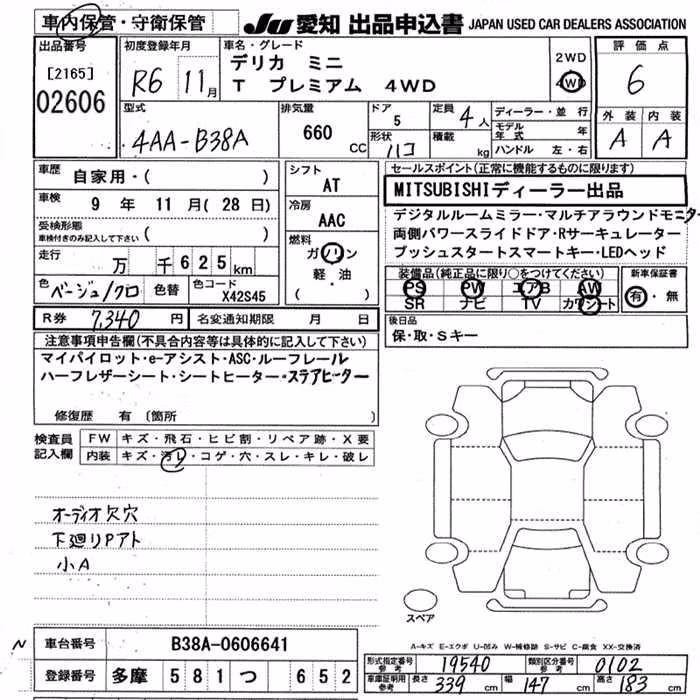 車内保管・守衛保管
JU 愛知 出品申込書 JAPAN USED CAR DEALERS ASSOCIATION
出品番号
[2165]
02606
初度登録年月
R6 11月
車名・グレード
デリカ ミニ
T プレミアム 4WD
2WD
4WD
評価点
6
外装 内装
A A
型式
4AA-B38A
排気量
660 CC
ドア
5
形状
ハコ
定員 4人
積載 kg
ディーラー・並行
モデル年式 年
ハンドル 左・右
車歴
自家用・( )
車検 9年 11月(28日)
受検形態
車検付きのみ記入して下さい ( )
走行 万 千 625km
色 ベージュ/クロ 色替 色コード X42S45
シフト
AT
冷房
AAC
燃料
ガソリン
軽・油
( )
セールスポイント(正常に機能するものに限ります)
MITSUBISHIディーラー出品
デジタルルームミラー・マルチアラウンドモニター
両側パワースライドドア・Rサーキュレーター
プッシュスタートスマートキー・LEDヘッド
装備品(純正品に限り○をつけてください)
PS PW エアB AW
SR ナビ TV カワシート
新車保証書
有・無
R券 7,340円 名変通知期限 月 日
後日品
保・取・Sキー
注意事項申告欄(不具合内容等は具体的に記入して下さい)
マイパイロット・e-アシスト・ASC・ルーフレール
ハーフレザーシート・シートヒーター・ステアヒーター
修復歴 有 〔箇所 〕
検査員記入欄
FW キズ・飛石・ヒビ割・リペア跡・X要
内装 キズ・汚レ・コゲ・穴・スレ・キレ・破レ
オーディオ欠穴
下廻りPアト
小A
スペア
A-キズ E-エクボ U-凹み W-補修跡 S-サビ C-腐食 XX-交換済
N
車台番号 B38A-0606641
登録番号 多摩 581 つ 652
形式指定番号 参考 19540 類別区分番号 参考 0102
車庫証明用 参考 長さ 339cm 幅 147cm 高さ 183cm